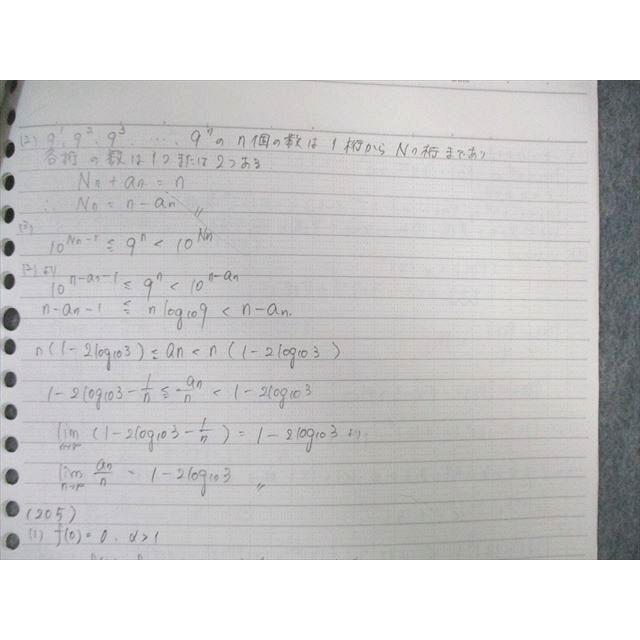 (2) 9^1, 9^2, 9^3, ……, 9^n の n個の数は 1桁から Nn桁まであり
各桁の数は1つまたは2つある
Nn + an = n
∴ Nn = n - an 〃
(3)
10^{Nn-1} ≦ 9^n < 10^{Nn}
(2)より
10^{n-an-1} ≦ 9^n < 10^{n-an}
n-an-1 ≦ n log10 9 < n-an.
n(1-2log10 3) ≦ an < n(1-2log10 3)
1-2log10 3 - 1/n ≦ an/n < 1-2log10 3
lim n→∞ (1-2log10 3 - 1/n) = 1-2log10 3 より
lim n→∞ an/n = 1-2log10 3 〃
(205)
(1) f(0)=0, α>1